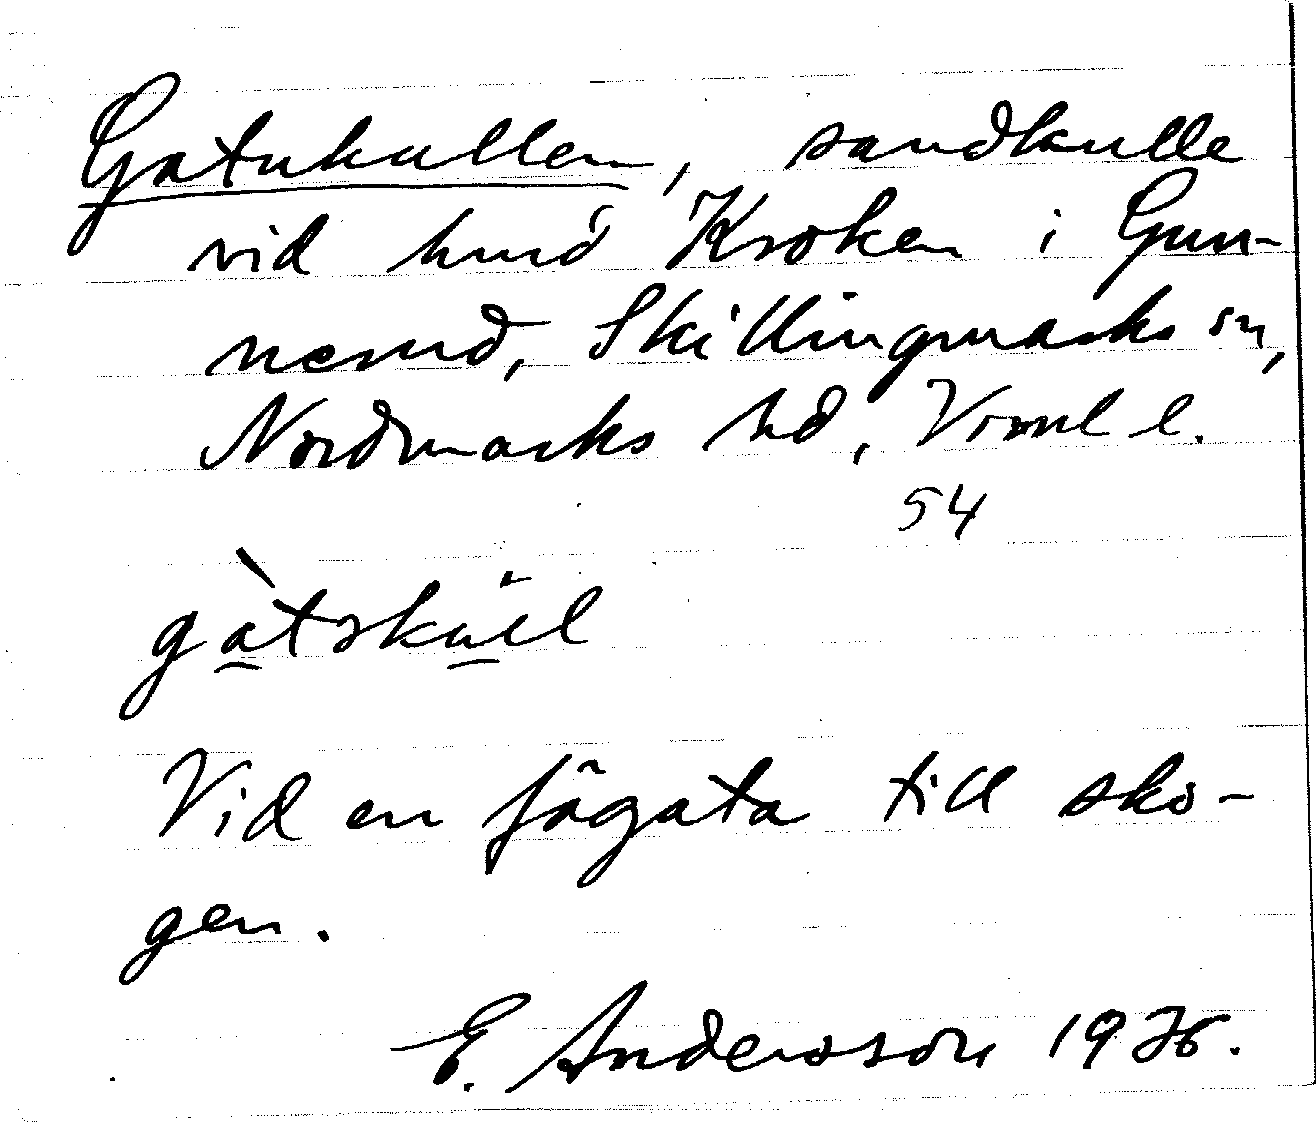 Gatukullen, sandkulle
vid hmd Kroken i Gun-
nerud, Skillingmarks sn,
Nordmarks hd, Vrml l.
54
Vid en fägata till sko-
gen.
E. Andersson 1976.